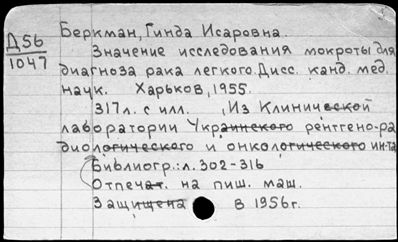 Беркман, Гинда Исаровна.
Д56
1047
Значение исследования мокроты для
диагноза рака легкого. Дисс. канд. мед.
наук. Харьков, 1955.
317л. с илл. , Из Клинической
лаборатории Украинского рентгено-ра
диологического и онкологического ин-та
Библиогр.: л. 302-316
Отпечат. на пиш. маш.
Защищена в 1956г.